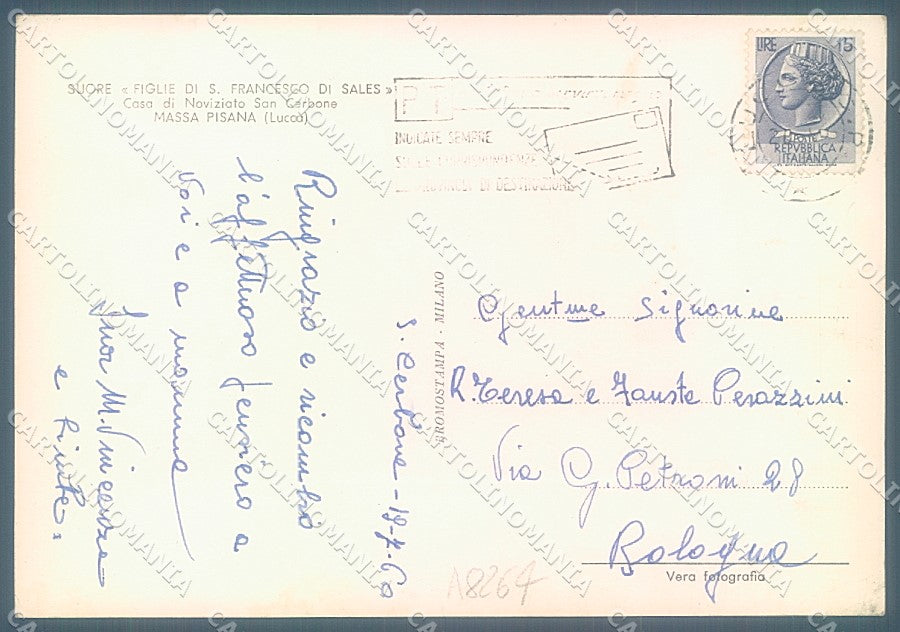 SUORE « FIGLIE DI S. FRANCESCO DI SALES »
Casa di Noviziato San Cerbone
MASSA PISANA (Lucca)
P T
INDICATE SEMPRE
DI DESTINAZIONE
LIRE 15
POSTE
REPVBBLICA
ITALIANA
S. Cerbone - 18-7-60
Ringrazio e ricambio
l'affettuoso pensiero a
voi e a mamma
Suor M. Vincenza
e
CROMOSTAMPA - MILANO
Gent.me Signorine
R. Teresa e Fausta Perazzini
Via G. Petroni 28
Bologna
Vera fotografia
A8264
CARTOLINOMANIA